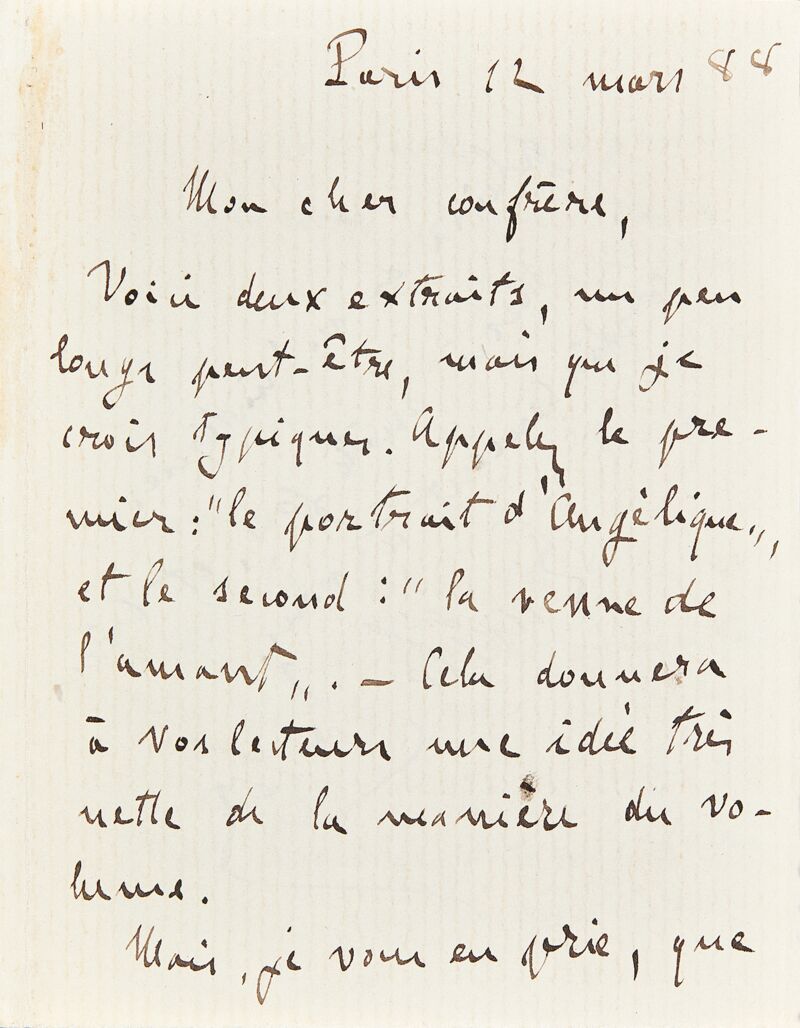 Paris 12 mars 88
Mon cher confrère,
Voici deux extraits, un peu
longs peut-être, mais que je
crois typiques. Appelez le pre-
mier: "le portrait d'Angélique„,
et le second : " la venue de
l'amant„. — Cela donnera
à vos lecteurs une idée très
nette de la manière du vo-
lume.
Mais, je vous en prie, que